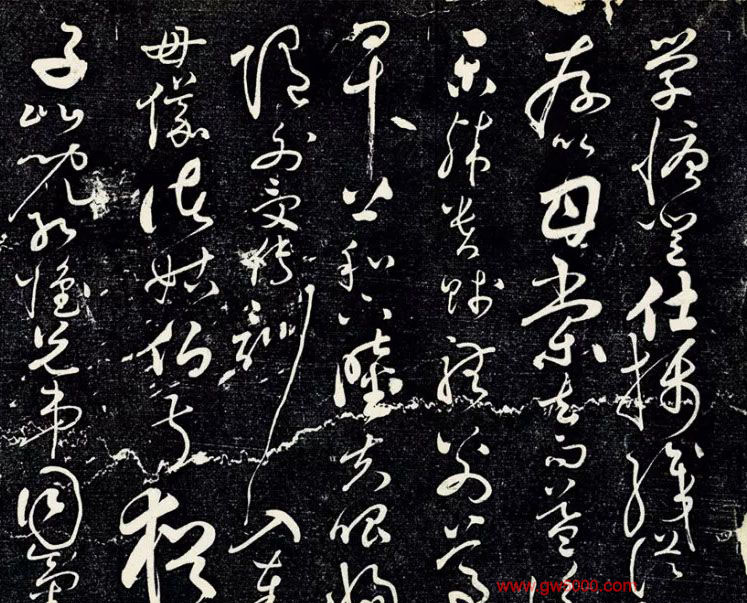 學優登仕攝職從
存以甘棠去而益
樂殊貴賤禮別尊
卑上和下睦夫唱婦
隨外受傅訓入奉
母儀諸姑伯叔猶
子比兒孔懷兄弟同氣
www.gw5000.com